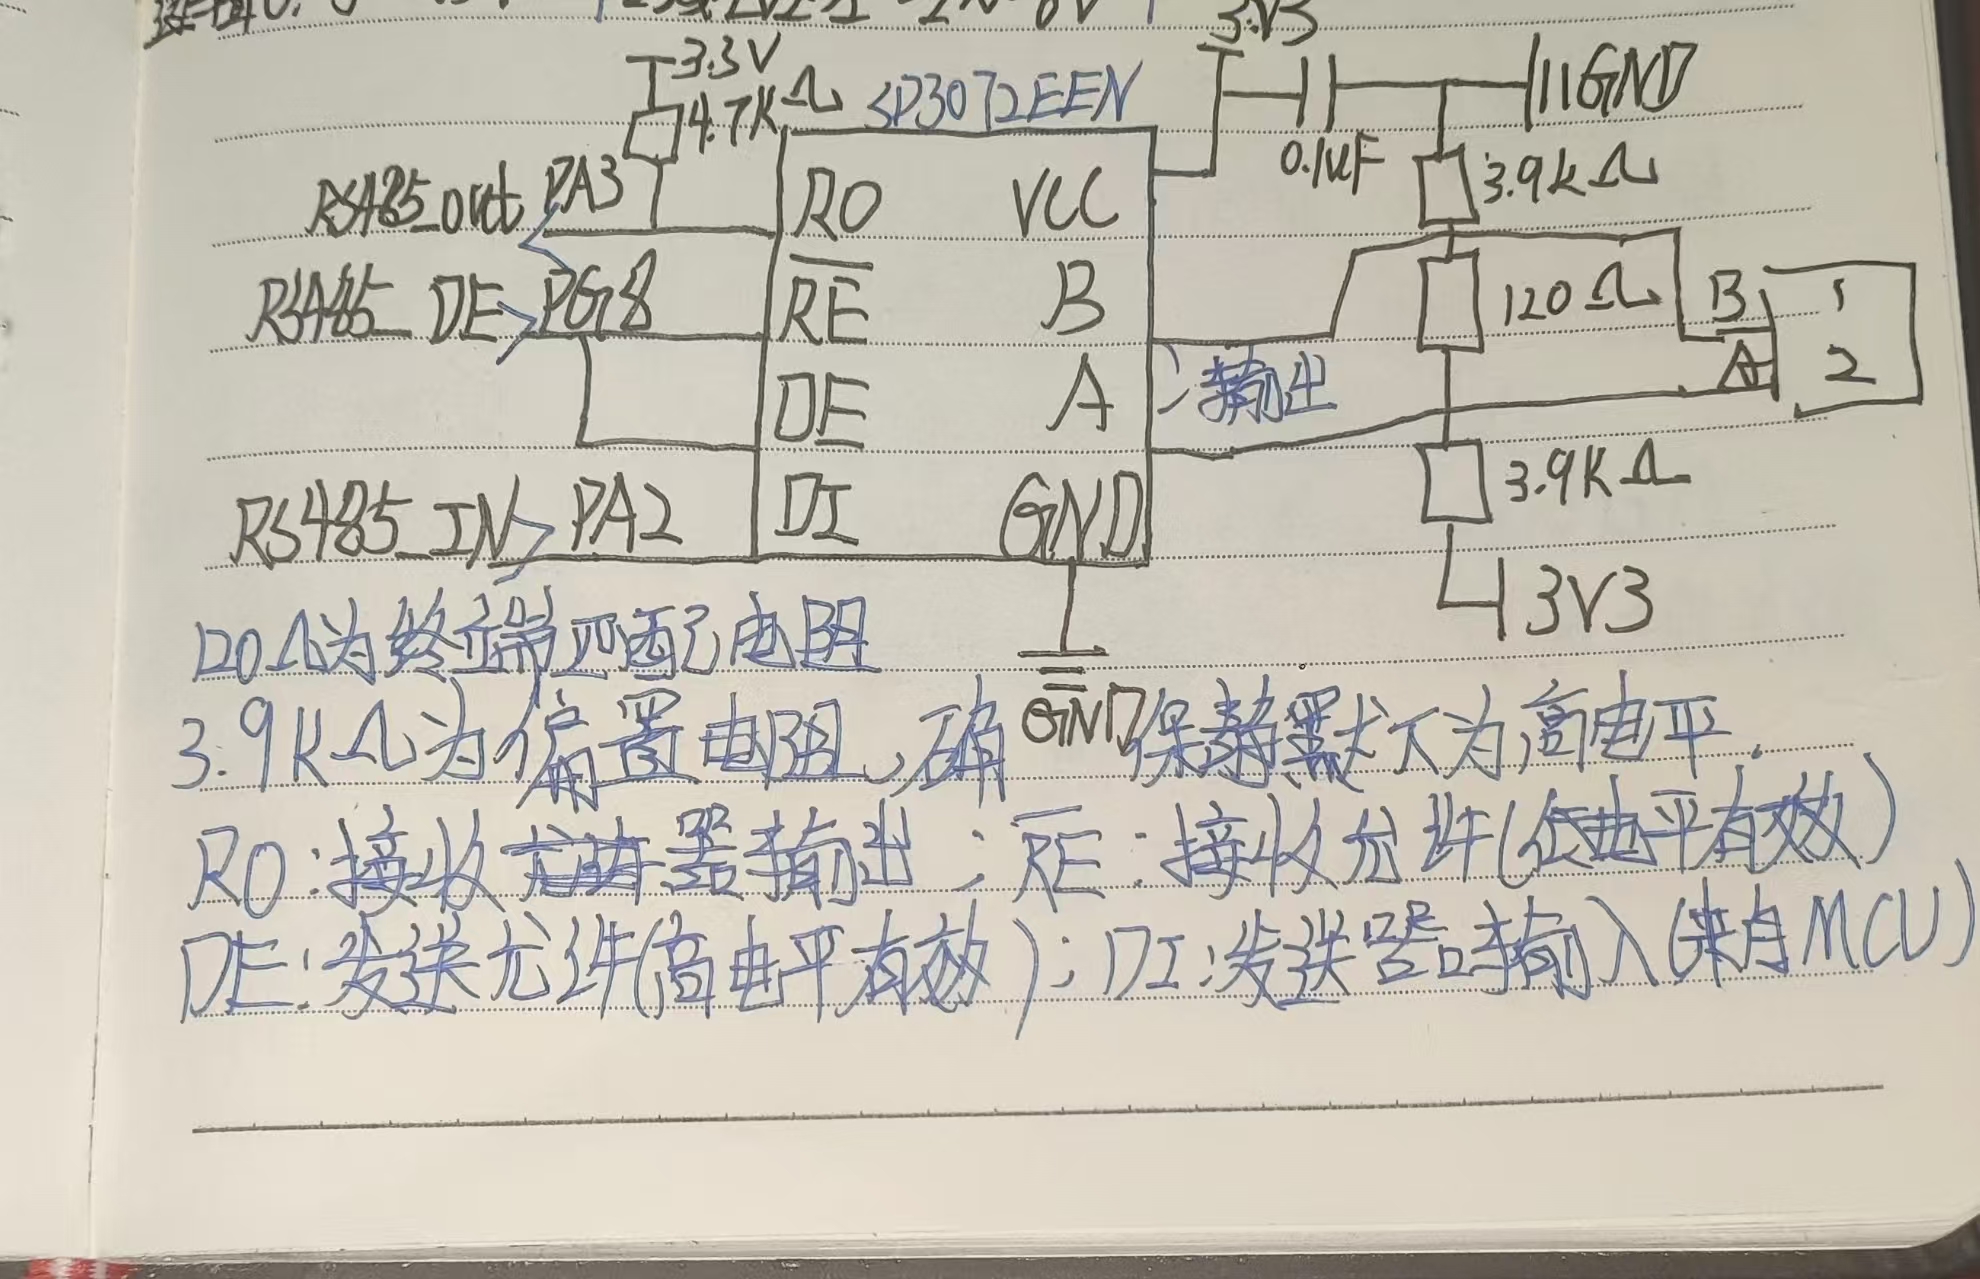 3.3V
3V3
4.7KΩ
SP3072EEN
GND
0.1uF
3.9kΩ
RS485_out
PA3
RO
VCC
RS485_DE
PG8
RE
B
120Ω
B
1
DE
A
输出
A
2
RS485_IN
PA2
DI
GND
3.9KΩ
3V3
120Ω为终端匹配电阻
GND
3.9KΩ为偏置电阻,确保静默下为高电平.
RO:接收器输出;RE:接收允许(低电平有效)
DE:发送允许(高电平有效);DI:发送器输入(来自MCU)